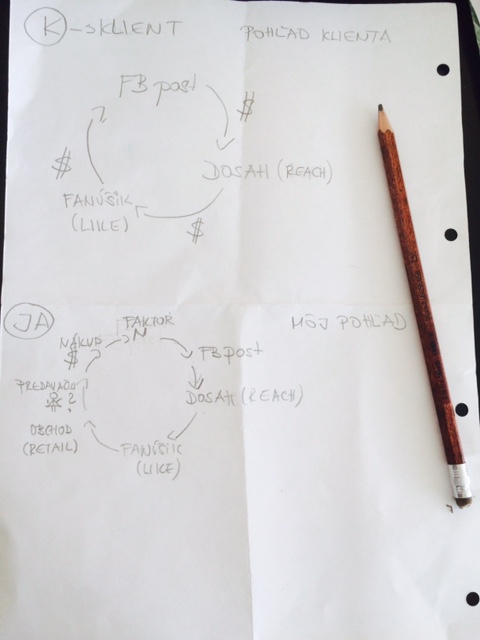 K -> KLIENT
POHĽAD KLIENTA
FB post
$
DOSAH (REACH)
$
FANÚŠIK
(LIKE)
$
JA
MÔJ POHĽAD
FAKTOR
N
FB post
DOSAH (REACH)
FANÚŠIK
(LIKE)
OBCHOD
(RETAIL)
PREDAVAČ
?
NÁKUP
$